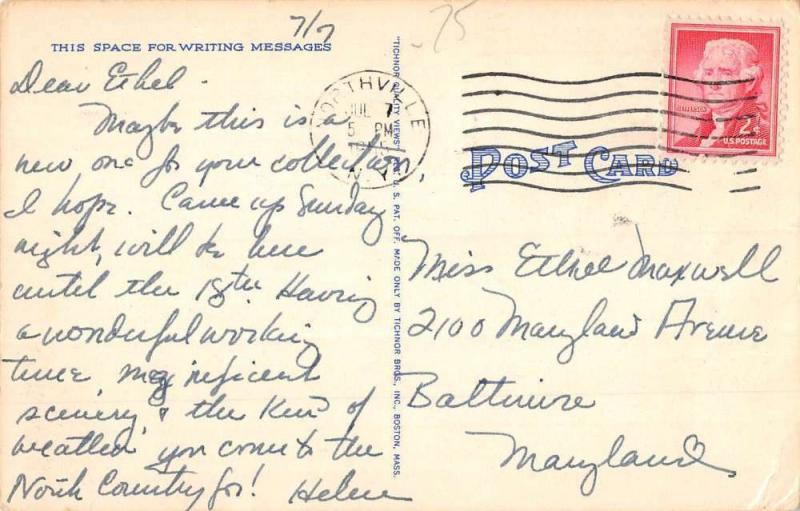 7/7
.75
THIS SPACE FOR WRITING MESSAGES
Dear Ethel -
Maybe this is a
new one for your collection,
I hope. Came up Sunday
night, will be here
until the 18th. Having
a wonderful working
time, magnificent
scenery, & the kind of
weather you come to the
North Country for! Helen
"TICHNOR QUALITY VIEWS" REG. U. S. PAT. OFF. MADE ONLY BY TICHNOR BROS., INC., BOSTON, MASS.
NORTHVILLE
JUL 7
5 PM
N.Y.
JEFFERSON
2¢
U.S. POSTAGE
POST CARD
Miss Ethel Maxwell
2100 Maryland Avenue
Baltimore
Maryland